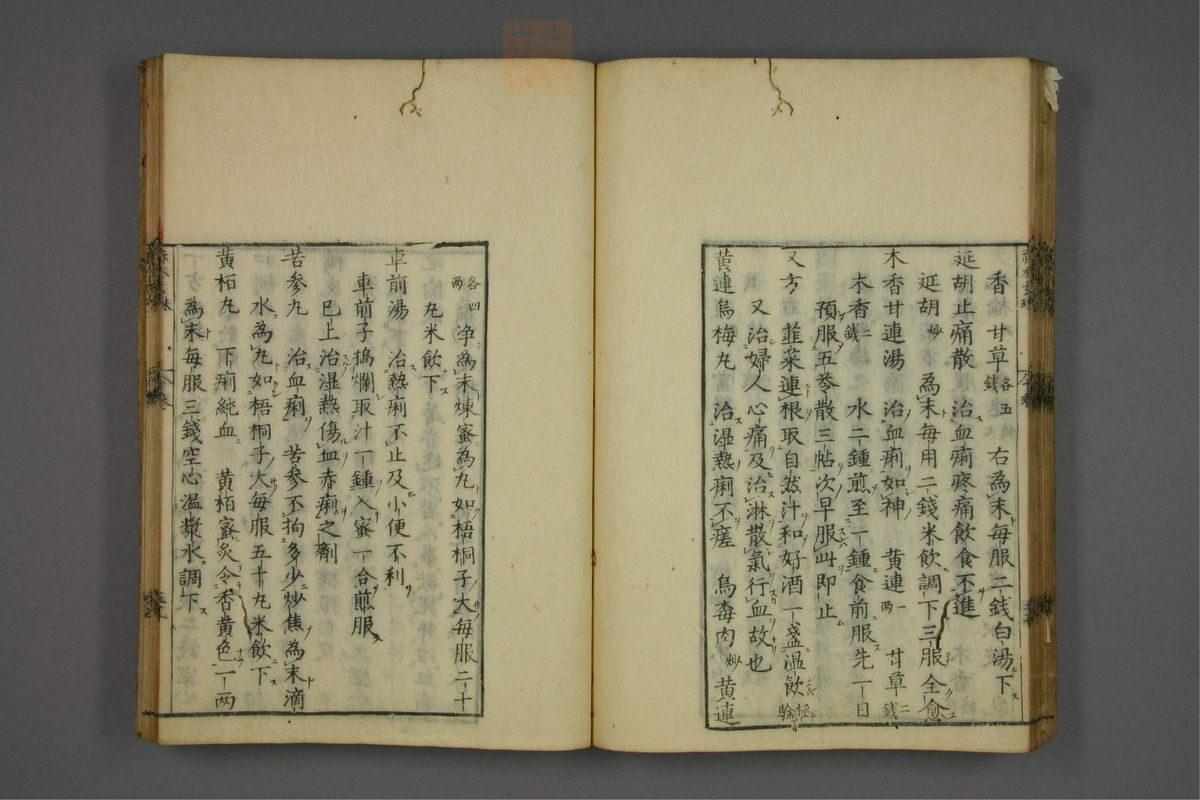 香 檳 甘草各五錢 右為末毎服二錢白湯下
延胡止痛散 治血痢疼痛飲食不進
延胡炒 為末毎用二錢米飲調下三服全愈
木香甘連湯 治血痢如神 黄連一兩 甘草二錢
木香二錢 水二鍾煎至一鍾食前服先一日
預服五苓散三帖次早服此即止
又方 韮菜連根取自然汁和好酒一盞温飲極驗
又治婦人心痛及治淋散氣行血故也
黄連烏梅丸 治湿熱痢不瘥 烏梅肉炒 黄連
各四兩 浄為末煉蜜為丸如梧桐子大毎服二十
丸米飲下
車前湯 治熱痢不止及小便不利
車前子搗爛取汁一鍾入蜜一合煎服
已上治湿熱傷血赤痢之劑
苦参丸 治血痢 苦参不拘多少炒焦為末滴
水為丸如梧桐子大毎服五十丸米飲下
黄栢丸 下痢純血 黄栢蜜炙令香黄色一兩
為末毎服三錢空心温漿水調下